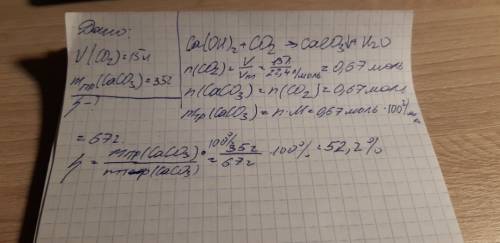 Дано:
V(CO₂)=15л
mпр(CaCO₃)=35г
η-?
Ca(OH)₂+CO₂→CaCO₃↓+H₂O
n(CO₂)=V/Vm=15л/22,4л/моль=0,67моль
n(CaCO₃)=n(CO₂)=0,67моль
(CaCO₃)=n·M=0,67моль·100г/моль
=67г.
η=mпр(CaCO₃)/(CaCO₃)·100%=35г/67г·100%=52,2%